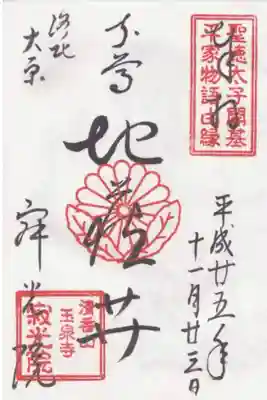 奉拝
聖徳太子開基
平家物語由縁
平成廿五年
十一月廿三日
本尊
地蔵𦬇
洛北
大原
寂光院
清香山
玉泉寺
寂光院